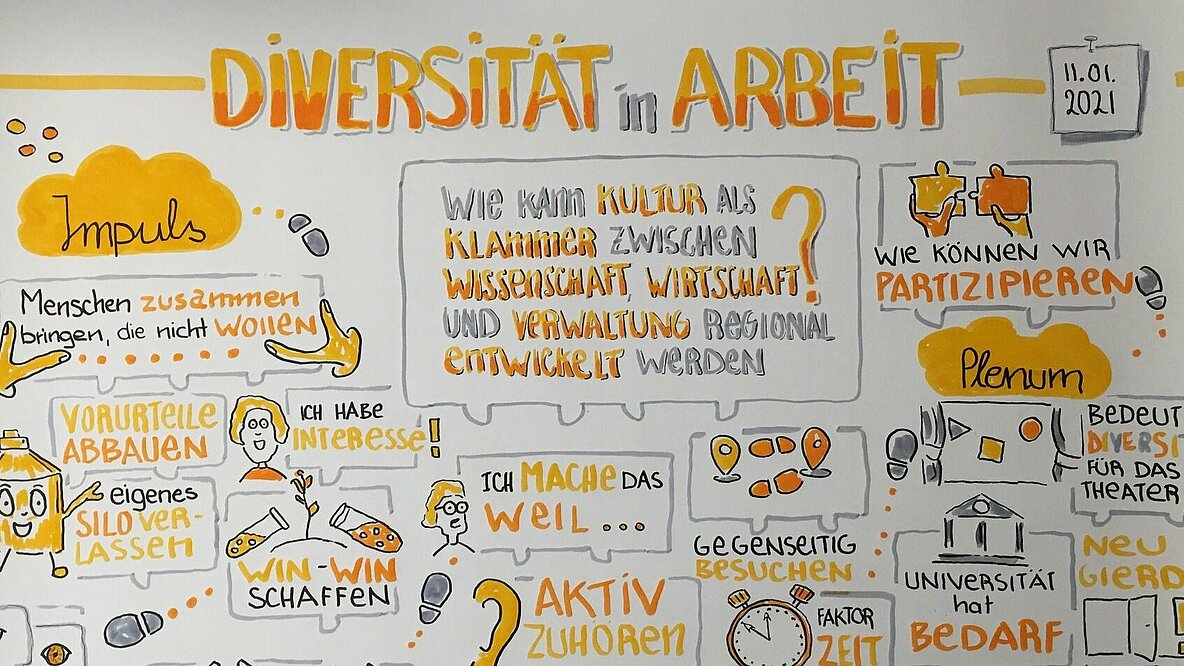 DiVERSiTÄT in ARBEiT
11.01.
2021
Impuls
Menschen zusammen
bringen, die nicht WOLLEN
VORURTEILE
ABBAUEN
ICH HABE
INTERESSE!
eigenes
SILO VER-
LASSEN
WIN-WIN
SCHAFFEN
WIE KANN KULTUR ALS
KLAMMER ZWISCHEN
WISSENSCHAFT, WIRTSCHAFT
UND VERWALTUNG REGIONAL
ENTWICKELT WERDEN
?
ICH MACHE DAS
WEIL...
AKTIV
ZUHÖREN
GEGENSEITIG
BESUCHEN
FAKTOR
ZEIT
WIE KÖNNEN WIR
PARTIZIPIEREN
Plenum
BEDEUT
DIVERSI
FÜR DAS
THEATER
UNIVERSITÄT
hat
BEDARF
NEU
GIERD